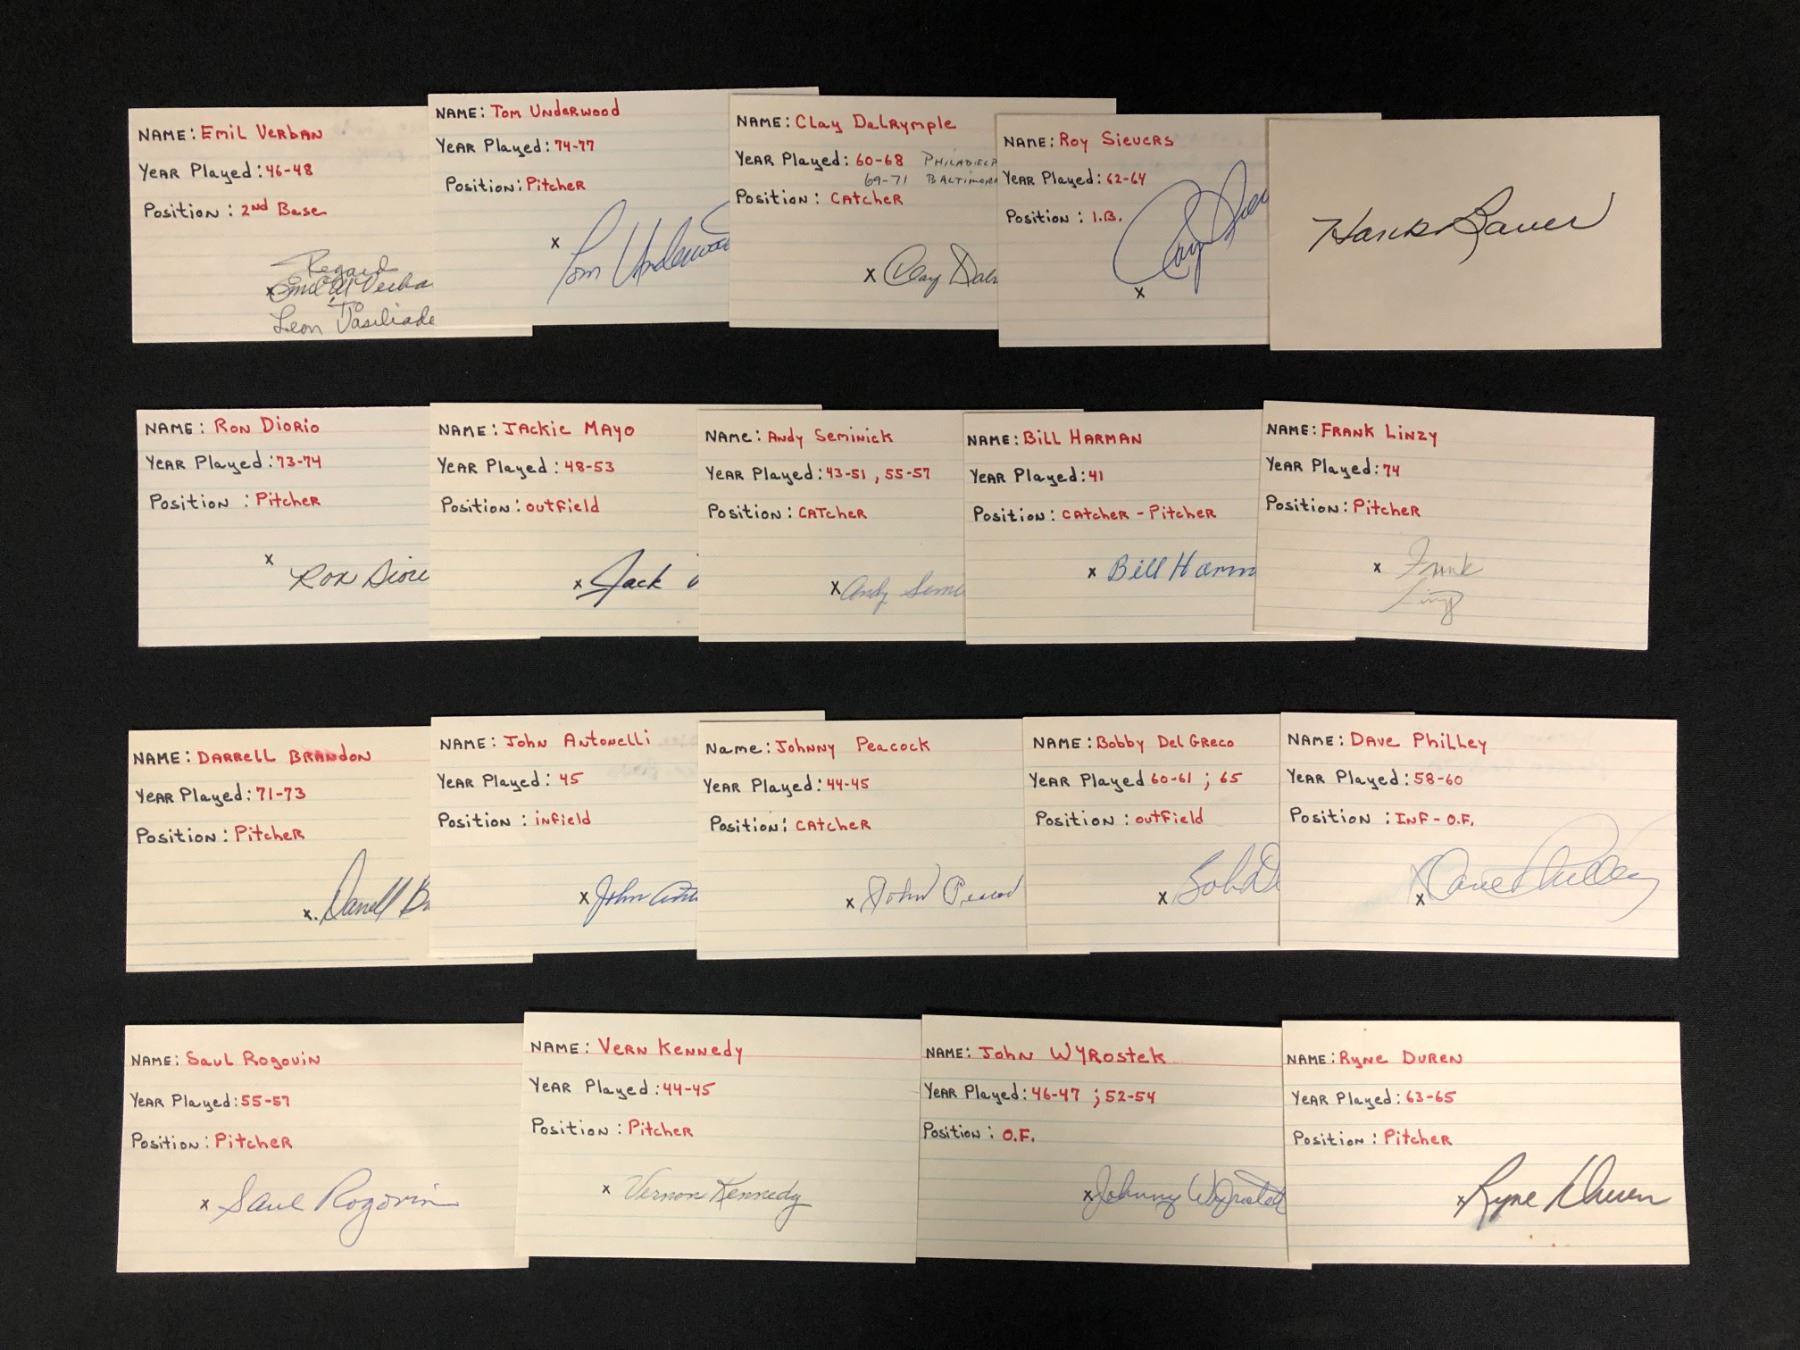 NAME: Emil Verban
Year Played: 46-48
Position: 2nd Base
Regard
x Emil M Verba
To
Leon Vasiliade
NAME: Tom Underwood
Year Played: 74-77
Position: Pitcher
x Tom Underwoo
NAME: Clay Dalrymple
Year Played: 60-68 PHILADELP
69-71 BALTIMOR
Position: Catcher
x Clay Dal
NAME: Roy Sievers
Year Played: 62-64
Position: 1.B.
Roy Siev
x
Hank Bauer
NAME: Ron Diorio
Year Played: 73-74
Position: Pitcher
x
Ron Diori
NAME: Jackie Mayo
Year Played: 48-53
Position: outfield
x Jack
Name: Andy Seminick
Year Played: 43-51, 55-57
Position: Catcher
x Andy Semi
NAME: Bill Harman
Year Played: 41
Position: Catcher - Pitcher
x Bill Harm
NAME: Frank Linzy
Year Played: 74
Position: Pitcher
x Frank
Linzy
NAME: Darrell Brandon
Year Played: 71-73
Position: Pitcher
x. Darrell B
NAME: John Antonelli
Year Played: 45
Position: infield
x John Anto
Name: Johnny Peacock
Year Played: 44-45
Position: Catcher
x John Peacoc
NAME: Bobby Del Greco
Year Played 60-61; 65
Position: outfield
x Bob D
NAME: Dave Philley
Year Played: 58-60
Position: INF - O.F.
x Dave Philley
NAME: Saul Rogovin
Year Played: 55-57
Position: Pitcher
x Saul Rogovin
NAME: Vern Kennedy
Year Played: 44-45
Position: Pitcher
x Vernon Kennedy
NAME: John Wyrostek
Year Played: 46-47; 52-54
Position: O.F.
x Johnny Wyrostek
NAME: Ryne Duren
Year Played: 63-65
Position: Pitcher
x Ryne Duren